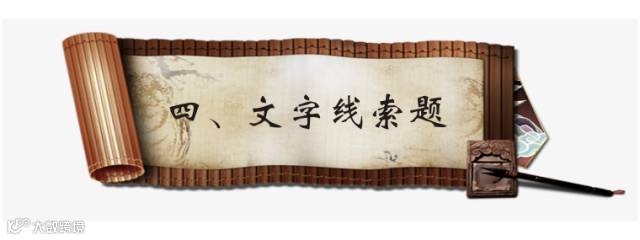 四、文字线索题
大数跨境